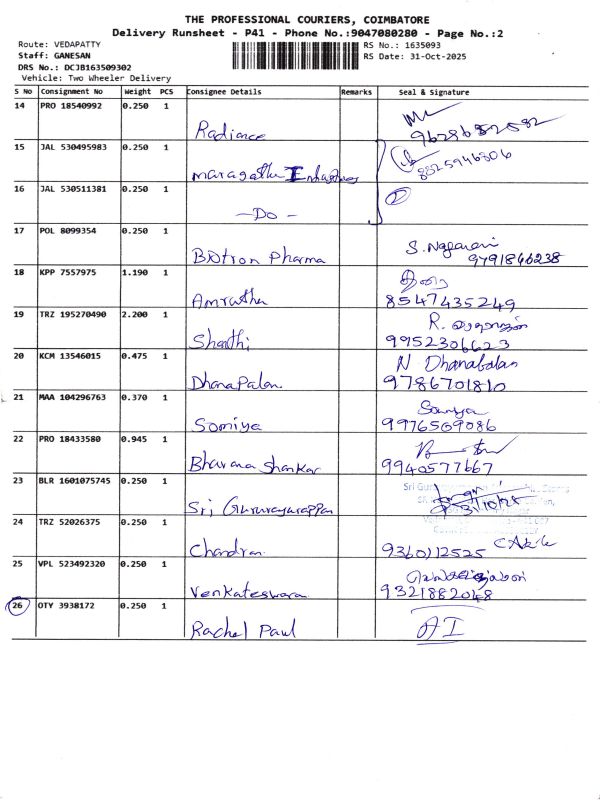 THE PROFESSIONAL COURIERS, COIMBATORE
Delivery Runsheet - P41 - Phone No.:9047080280 - Page No.:2
Route: VEDAPATTY RS No.: 1635093
Staff: GANESAN RS Date: 31-Oct-2025
DRS No.: DCJB163509302
Vehicle: Two Wheeler Delivery
S No Consignment No Weight PCS Consignee Details Remarks Seal & Signature
14 PRO 18540992 0.250 1
Radiance 9628652532
15 JAL 530495983 0.250 1
maragatha 8825946806
16 JAL 530511381 0.250 1
-Do-
17 POL 8099354 0.250 1
Biotron Pharma S. Nagarani
9791866238
18 KPP 7557975 1.190 1
Amrutha 8547435249
19 TRZ 195270490 2.200 1 R.
Shanthi 9952306623
20 KCM 13546015 0.475 1 N Dhanabalan
DhanaPalan. 9786701810
21 MAA 104296763 0.370 1 Sowmya
Somiya 9976509086
22 PRO 18433580 0.945 1
Bhavana Shankar 9940577667
23 BLR 1601075745 0.250 1
Sri Gururayurappan 31/10/25
24 TRZ 52026375 0.250 1
Chandran 9360112525
25 VPL 523492320 0.250 1
Venkateswara 9321882048
26 OTY 3938172 0.250 1
Rachel Paul AI